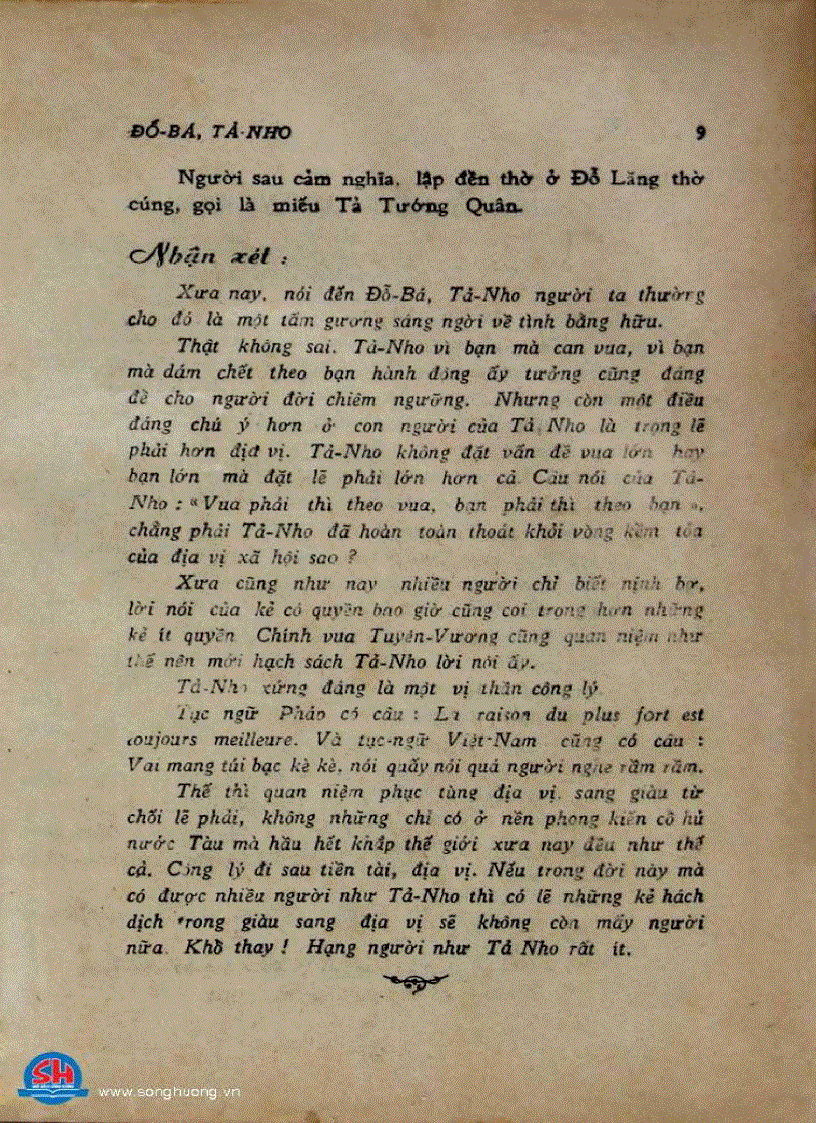 ĐỖ-BÁ, TẢ-NHO 9
Người sau cảm nghĩa, lập đền thờ ở Đỗ Lăng thờ
cúng, gọi là miếu Tả Tướng Quân.
Nhận xét :
Xưa nay, nói đến Đỗ-Bá, Tả-Nho người ta thường
cho đó là một tấm gương sáng ngời về tình bằng hữu.
Thật không sai. Tả-Nho vì bạn mà can vua, vì bạn
mà dám chết theo bạn hành động ấy tưởng cũng đáng
để cho người đời chiêm ngưỡng. Nhưng còn một điều
đáng chú ý hơn ở con người của Tả Nho là trọng lẽ
phải hơn địa vị. Tả-Nho không đặt vấn đề vua lớn hay
bạn lớn mà đặt lẽ phải lớn hơn cả. Câu nói của Tả-
Nho : « Vua phải thì theo vua, bạn phải thì theo bạn »,
chẳng phải Tả-Nho đã hoàn toàn thoát khỏi vòng kềm tỏa
của địa vị xã hội sao ?
Xưa cũng như nay nhiều người chỉ biết nịnh bợ,
lời nói của kẻ có quyền bao giờ cũng coi trọng hơn những
kẻ ít quyền Chính vua Tuyên-Vương cũng quan niệm như
thế nên mới hạch sách Tả-Nho lời nói ấy.
Tả-Nho xứng đáng là một vị thần công lý.
Tục ngữ Pháp có câu : La raison du plus fort est
toujours meilleure. Và tục-ngữ Việt-Nam cũng có câu :
Vai mang túi bạc kè kè, nói quấy nói quá người nghe rầm rầm.
Thế thì quan niệm phục tùng địa vị, sang giàu từ
chối lẽ phải, không những chỉ có ở nền phong kiến cổ hủ
nước Tàu mà hầu hết khắp thế giới xưa nay đều như thế
cả. Công lý đi sau tiền tài, địa vị. Nếu trong đời này mà
có được nhiều người như Tả-Nho thì có lẽ những kẻ hách
dịch trong giàu sang địa vị sẽ không còn mấy người
nữa. Khổ thay ! Hạng người như Tả Nho rất ít.
SH
www.songhuong.vn